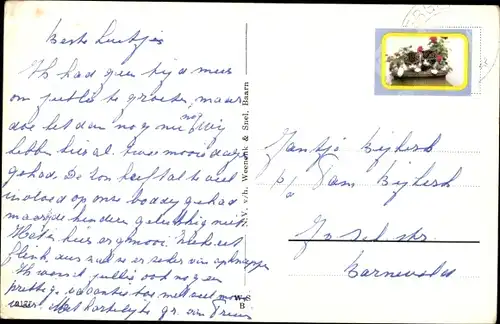 Beste luitjes
Ik had geen tijd meer
om jullie te groeten, maar
doe het dan nog
nog
Wij
hebben hier al twee mooie dagen
gehad. De zon heeft al te veel
invloed op onze gehad
maar hinderen gelukkig niet
Het is hier erg mooi.
flink, dus zal er zeker van opknappen
Ik wens jullie ook nog een
prettige vacantie toe met veel mooi
weer. Met hartelijke gr. van Truus
W.S
B
N.V. v/h. Weenenk & Snel, Baarn
Jantje Bijherk
p/a Fam Bijherk
str.
Barneveld